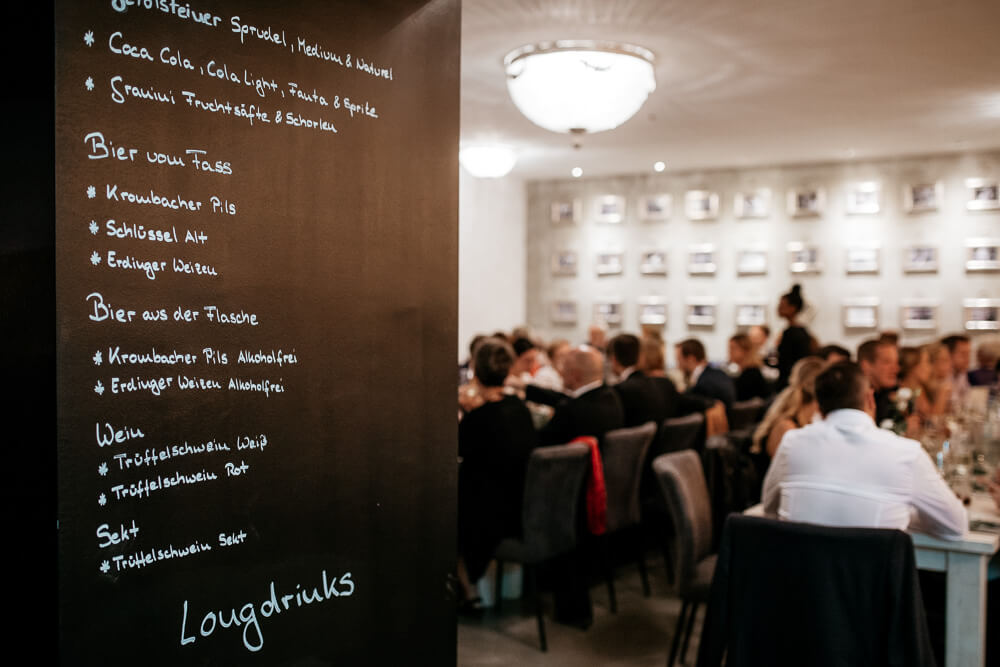 Gerolsteiner Sprudel, Medium & Naturel
* Coca Cola, Cola Light, Fanta & Sprite
* Granini Fruchtsäfte & Schorlen
Bier vom Fass
* Krombacher Pils
* Schlüssel Alt
* Erdinger Weizen
Bier aus der Flasche
* Krombacher Pils Alkoholfrei
* Erdinger Weizen Alkoholfrei
Wein
* Trüffelschwein Weiß
* Trüffelschwein Rot
Sekt
* Trüffelschwein Sekt
Longdrinks